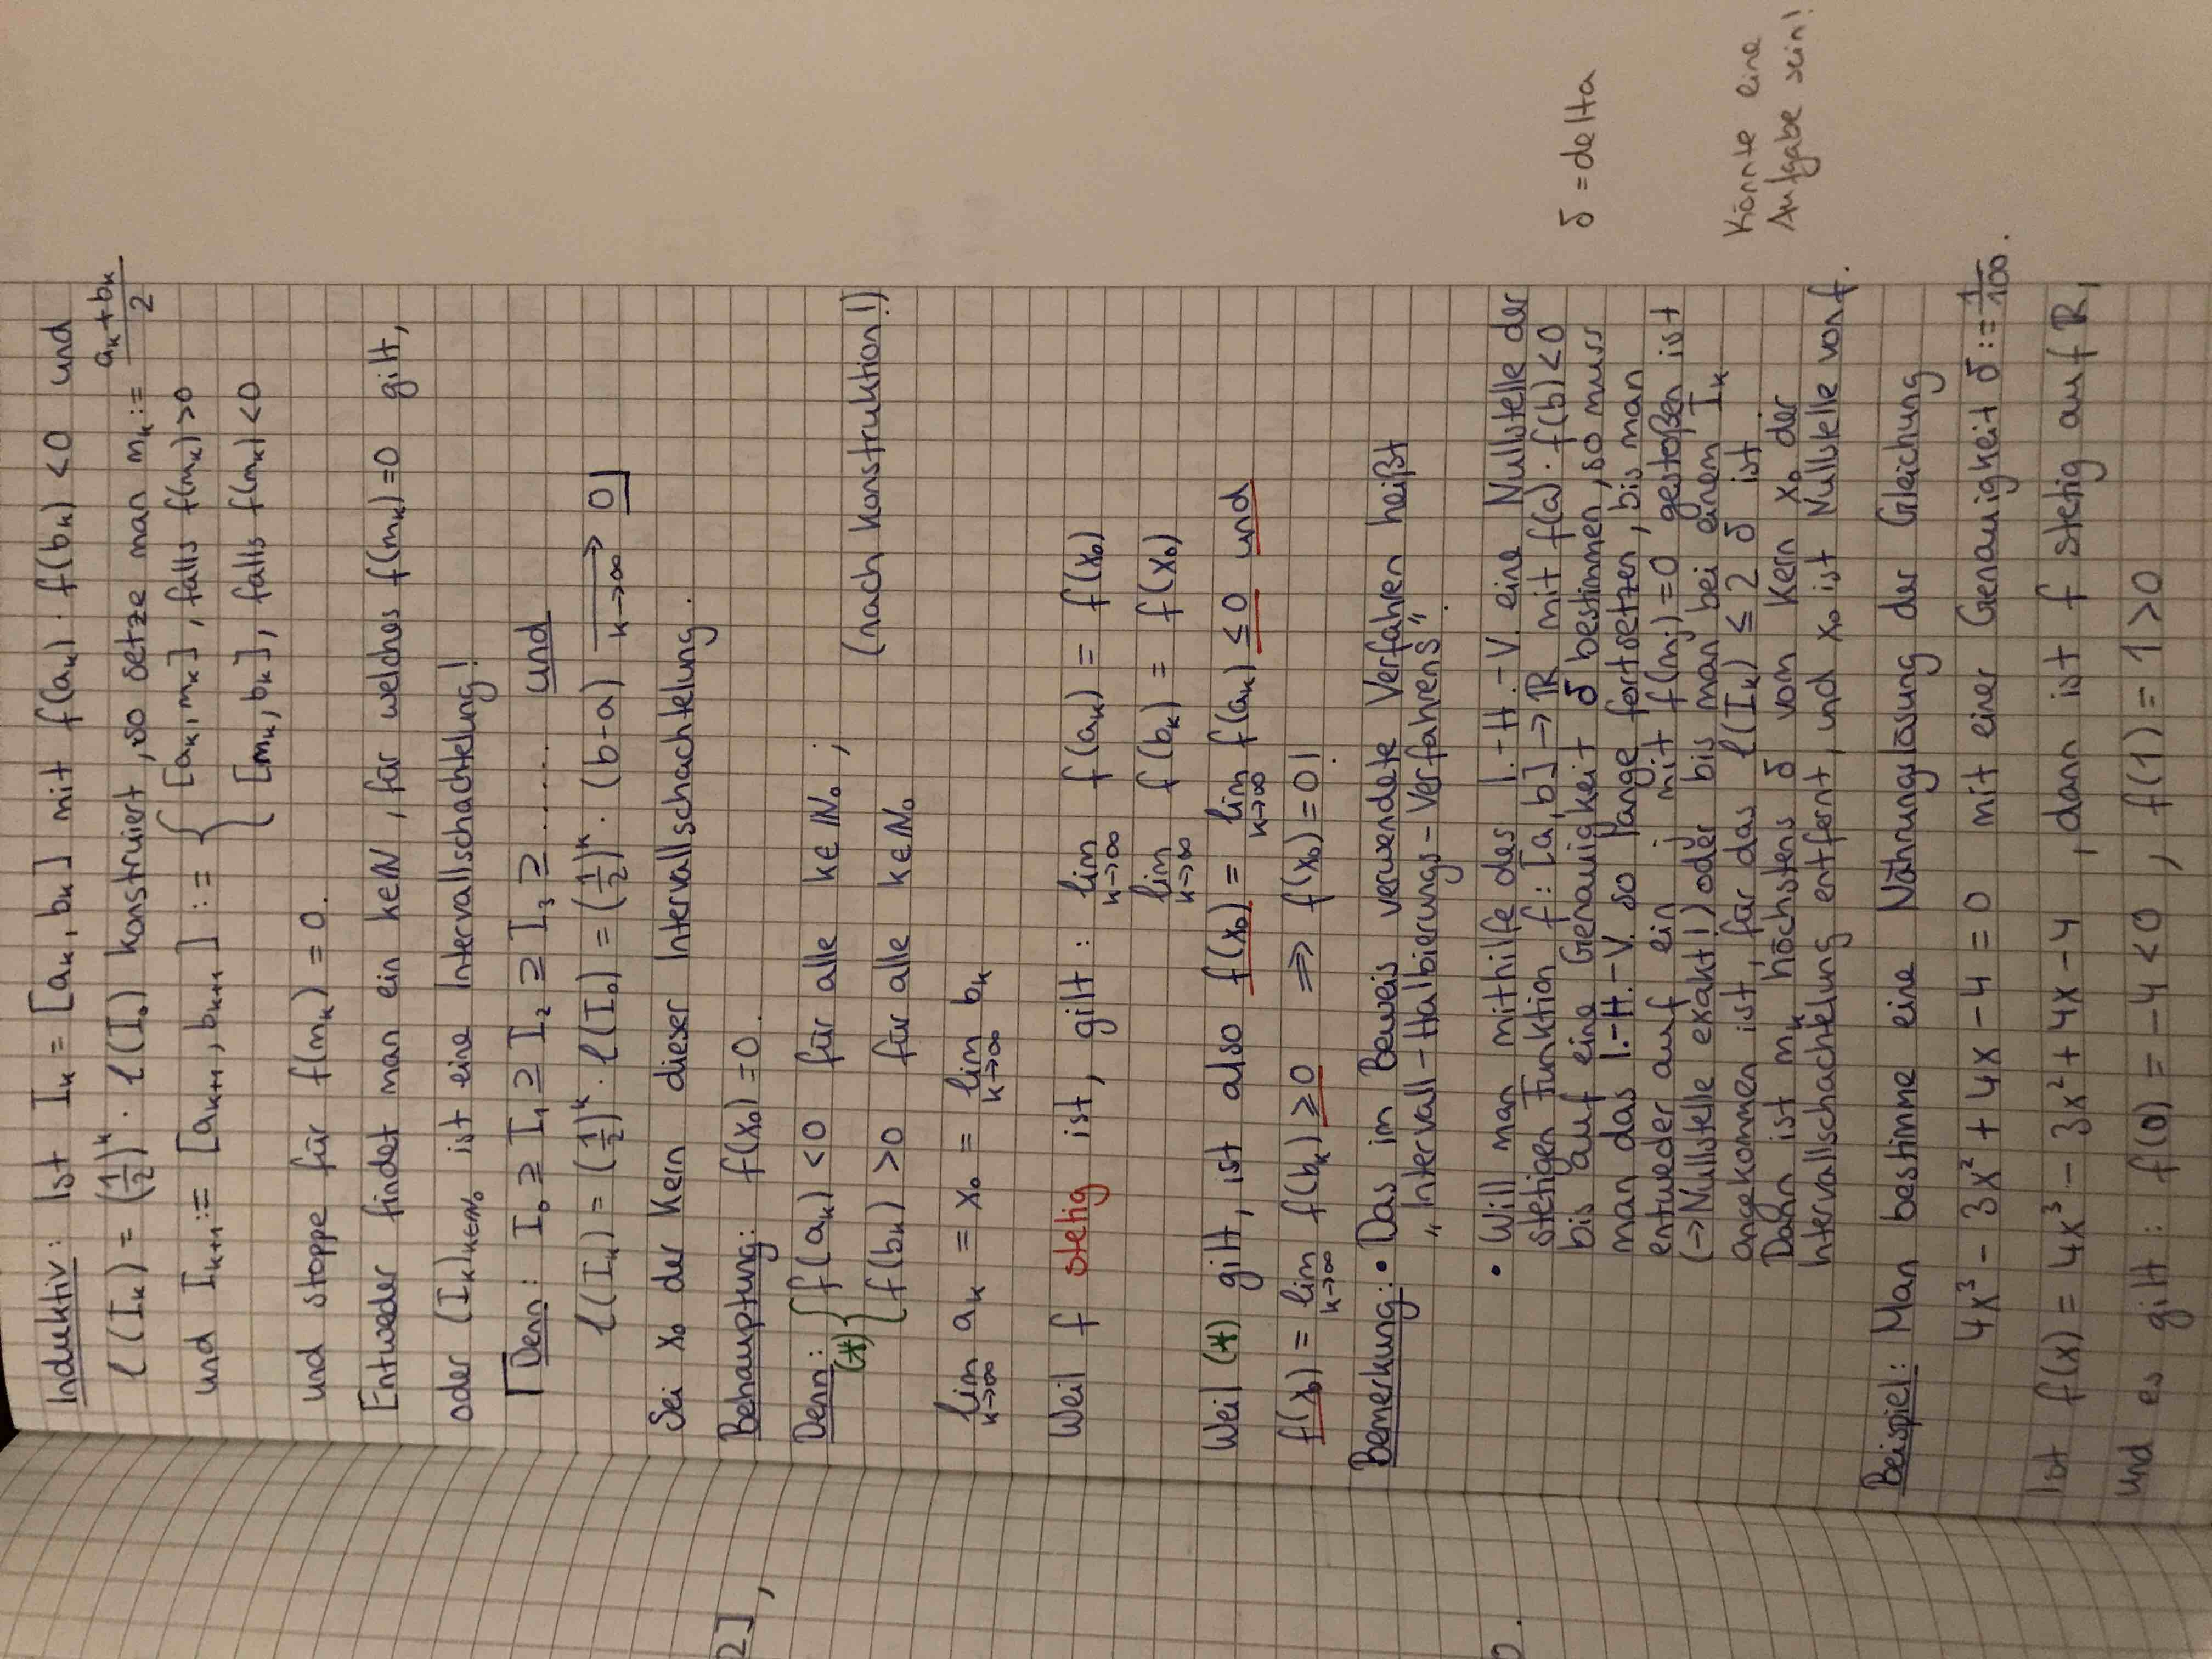 Induktiv: Ist Iₖ = [aₖ, bₖ] mit f(aₖ) · f(bₖ) < 0 und
l(Iₖ) = (1/2)ᵏ · l(I₀) konstruiert, so setze man mₖ := (aₖ+bₖ)/2
und Iₖ₊₁ := [aₖ₊₁, bₖ₊₁] := { [aₖ, mₖ], falls f(mₖ) > 0
[mₖ, bₖ], falls f(mₖ) < 0
und stoppe für f(mₖ) = 0.
[Entweder findet man ein k∈ℕ, für welches f(mₖ) = 0 gilt,
oder (Iₖ)ₖ∈ℕ₀ ist eine Intervallschachtelung!
⌈Denn: I₀ ⊇ I₁ ⊇ I₂ ⊇ I₃ ⊇ ..... und
l(Iₖ) = (1/2)ᵏ · l(I₀) = (1/2)ᵏ · (b-a) →(k→∞) 0⌋
Sei x₀ der Kern dieser Intervallschachtelung.
Behauptung: f(x₀) = 0.
Denn: (*) { f(aₖ) < 0 für alle k∈ℕ₀ ;
f(bₖ) > 0 für alle k∈ℕ₀ (nach Konstruktion!)
lim k→∞ aₖ = x₀ = lim k→∞ bₖ
Weil f stetig ist, gilt: lim k→∞ f(aₖ) = f(x₀)
lim k→∞ f(bₖ) = f(x₀)
Weil (*) gilt, ist also f(x₀) = lim k→∞ f(aₖ) ≤ 0 und
f(x₀) = lim k→∞ f(bₖ) ≥ 0 ⟹ f(x₀) = 0!
Bemerkung: • Das im Beweis verwendete Verfahren heißt
„Intervall-Halbierungs-Verfahrens".
• Will man mithilfe des I.-H.-V. eine Nullstelle der
stetigen Funktion f: [a, b] → ℝ mit f(a) · f(b) < 0
bis auf eine Genauigkeit δ bestimmen, so muss
man das I.-H.-V. so lange fortsetzen, bis man
entweder auf ein mⱼ mit f(mⱼ) = 0 gestoßen ist
(→ Nullstelle exakt!) oder bis man bei einem Iₖ
angekommen ist, für das l(Iₖ) ≤ 2δ ist
Dann ist mₖ höchstens δ vom Kern x₀ der
Intervallschachtelung entfernt, und x₀ ist Nullstelle von f.
δ = delta
Könnte eine
Aufgabe sein!
Beispiel: Man bestimme eine Nährungslösung der Gleichung
4x³ - 3x² + 4x - 4 = 0 mit einer Genauigkeit δ := 1/100.
Ist f(x) = 4x³ - 3x² + 4x - 4, dann ist f stetig auf ℝ,
und es gilt: f(0) = -4 < 0, f(1) = 1 > 0
2],
0.